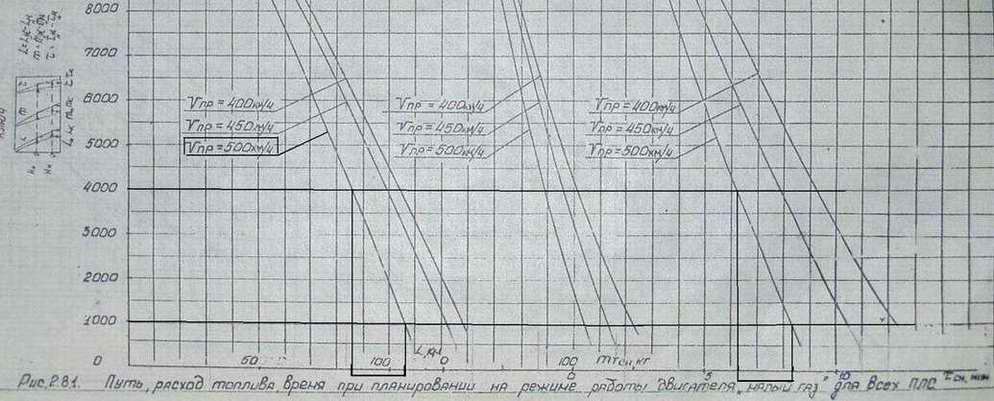 8000
7000
6000
5000
4000
3000
2000
1000
0
Vпр = 400км/ч
Vпр = 450км/ч
Vпр = 500км/ч
Vпр = 400км/ч
Vпр = 450км/ч
Vпр = 500км/ч
Vпр = 400км/ч
Vпр = 450км/ч
Vпр = 500км/ч
50 100 L, км 0 100 mтсн, кг
0 5 10
Рис. 2.8.1. Путь, расход топлива, время при планировании на режиме работы двигателя „малый газ" для всех ПЛС τсн, мин